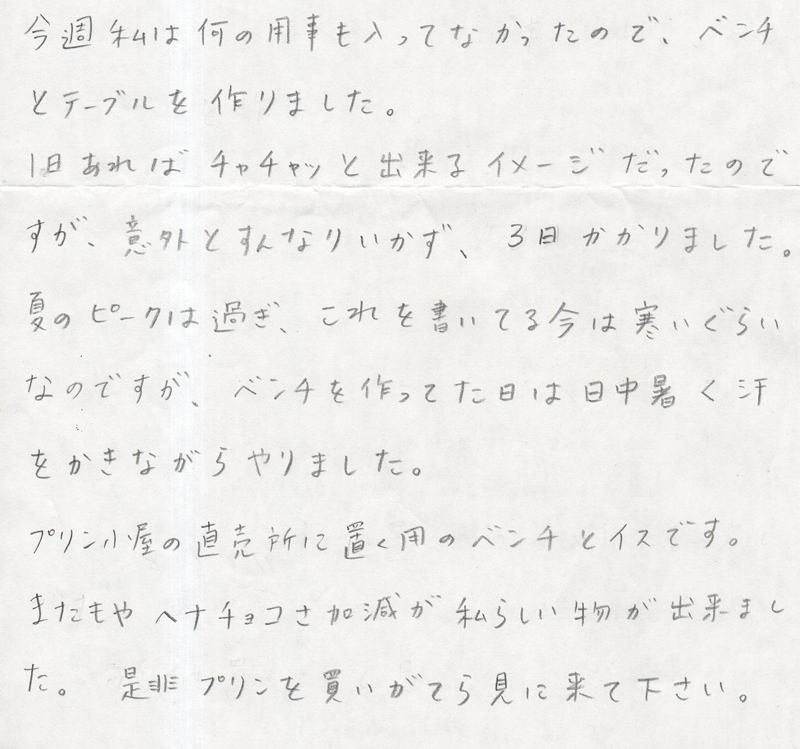 今週私は何の用事も入ってなかったので、ベンチ
とテーブルを作りました。
1日あればチャチャッと出来るイメージだったので
すが、意外とすんなりいかず、3日かかりました。
夏のピークは過ぎ、これを書いてる今は寒いぐらい
なのですが、ベンチを作ってた日は日中暑く汗
をかきながらやりました。
プリン小屋の直売所に置く用のベンチとイスです。
またもやヘナチョコさ加減が私らしい物が出来まし
た。 是非プリンを買いがてら見に来て下さい。